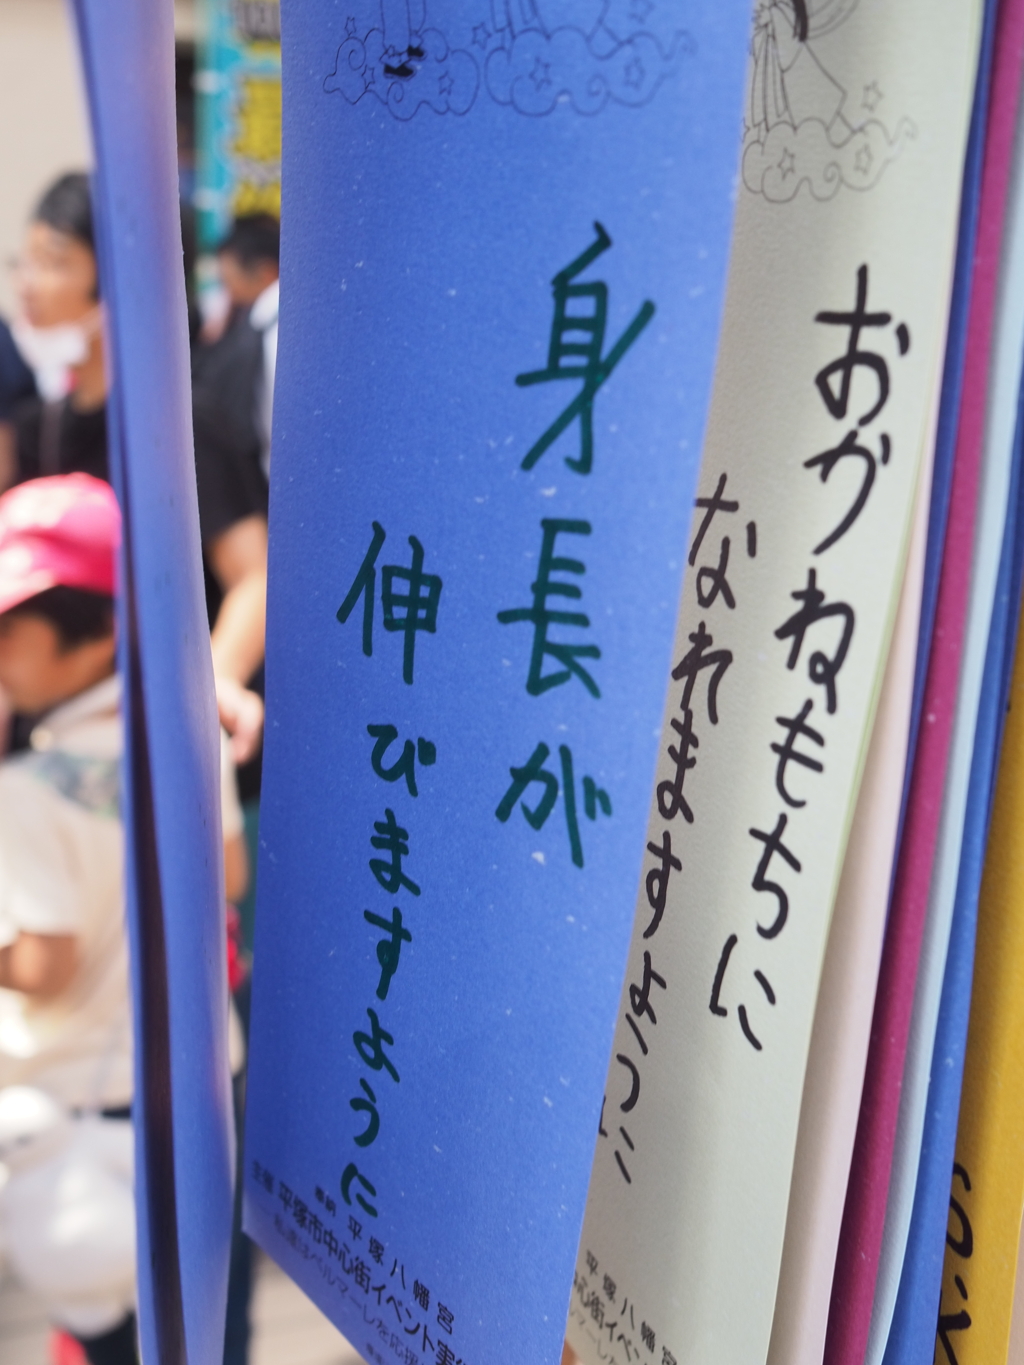 身長が
伸びますように
奉納 平塚八幡宮
主催 平塚市中心街イベント実
ベルマーレを応援
おかねもちに
なれますように
平塚八幡宮
心街イベン
マーレし